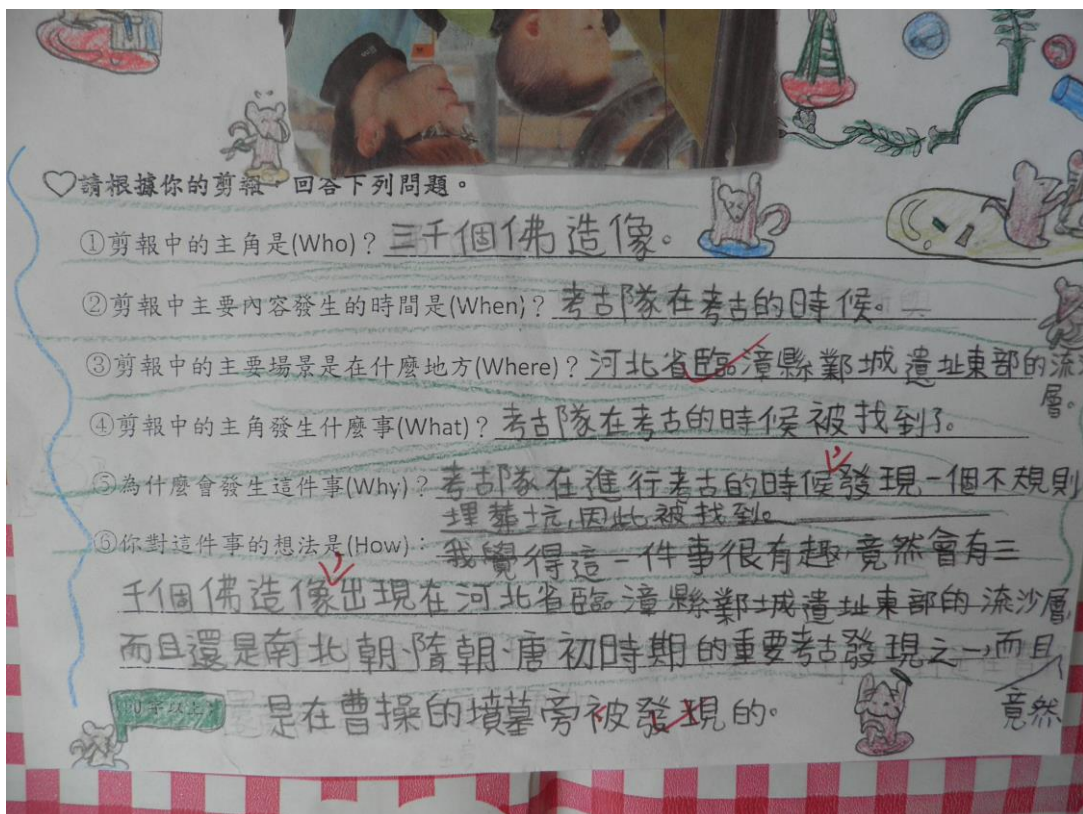 ♡請根據你的剪報，回答下列問題。
①剪報中的主角是(Who)？三千個佛造像。
②剪報中主要內容發生的時間是(When)？考古隊在考古的時候。
③剪報中的主要場景是在什麼地方(Where)？河北省臨漳縣鄴城遺址東部的流沙
層。
④剪報中的主角發生什麼事(What)？考古隊在考古的時候被找到了。
⑤為什麼會發生這件事(Why)？考古隊在進行考古的時候發現一個不規則
埋葬坑,因此被找到。
⑥你對這件事的想法是(How)：我覺得這一件事很有趣,竟然會有三
千個佛造像出現在河北省臨漳縣鄴城遺址東部的流沙層,
而且還是南北朝、隋朝、唐初時期的重要考古發現之一,而且
竟然
是在曹操的墳墓旁被發現的。
字以上